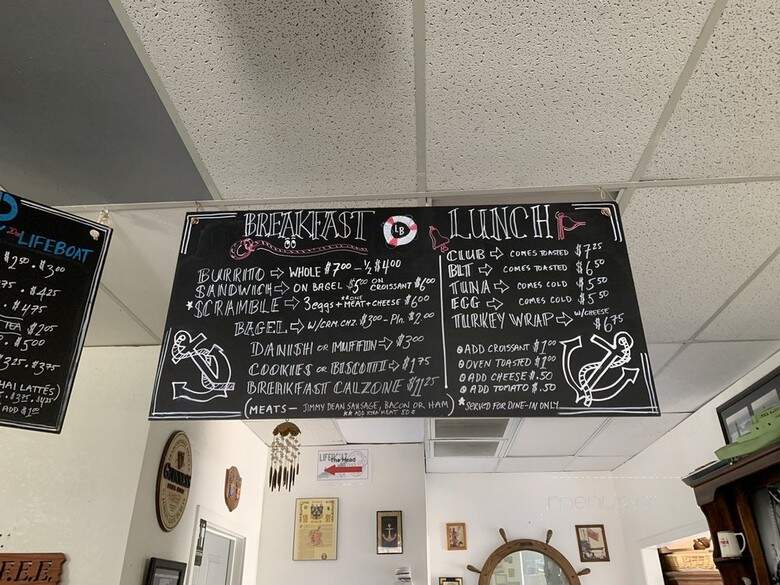 LIFEBOAT
$2⁵⁰ • $3⁰⁰
$4²⁵
$4⁷⁵
TEA $2⁰⁵
$5⁰⁰
3²⁵ • $3⁷⁵
HAI LATTÉS)
ADD $1⁰⁰
BREAKFAST
BURRITO ⇨ WHOLE $7⁰⁰ - ½ $4⁰⁰
SANDWICH ⇨ ON BAGEL $5⁰⁰ ON CROISSANT $6⁰⁰
*SCRAMBLE ⇨ 3 eggs + **ONE MEAT + CHEESE $6⁰⁰
BAGEL ⇨ W/CRM. CHZ. $3⁰⁰ - Pln. $2.⁰⁰
DANISH OR MUFFIN ⇨ $3⁰⁰
COOKIES OR BISCOTTI ⇨ $1⁷⁵
BREAKFAST CALZONE $11²⁵
(MEATS - JIMMY DEAN SAUSAGE, BACON OR HAM)
** ADD XTRA MEAT 50¢
LB
LUNCH
CLUB ⇨ COMES TOASTED $7²⁵
BLT ⇨ COMES TOASTED $6⁵⁰
TUNA ⇨ COMES COLD $5⁵⁰
EGG ⇨ COMES COLD $5⁵⁰
TURKEY WRAP ⇨ W/CHEESE $6⁷⁵
ADD CROISSANT $1⁰⁰
OVEN TOASTED $1⁰⁰
ADD CHEESE $.50
ADD TOMATO $.50
*SERVED FOR DINE-IN ONLY
GUINNESS
LIFEBOAT
The Head
F.E.E.